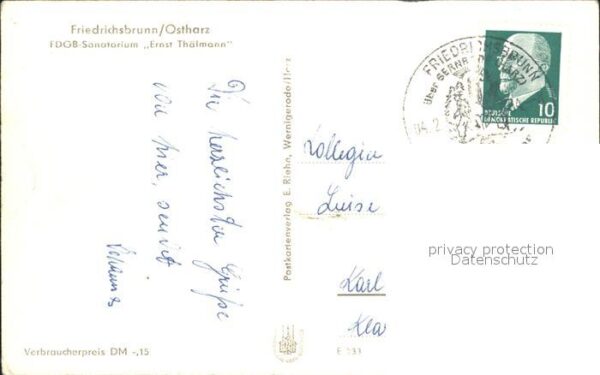 Friedrichsbrunn/Ostharz
FDGB-Sanatorium „Ernst Thälmann“
Die herzlichsten Grüße
von hier, sendet
Postkartenverlag E. Riehn, Wernigerode/Harz
FRIEDRICHSBRUNN
über BERNB
(HARZ)
10
DEUTSCHE
DEMOKRATISCHE REPUBLIK
Kollegin
Luise
Karl
Kla
privacy protection
Datenschutz
Verbraucherpreis DM -,15